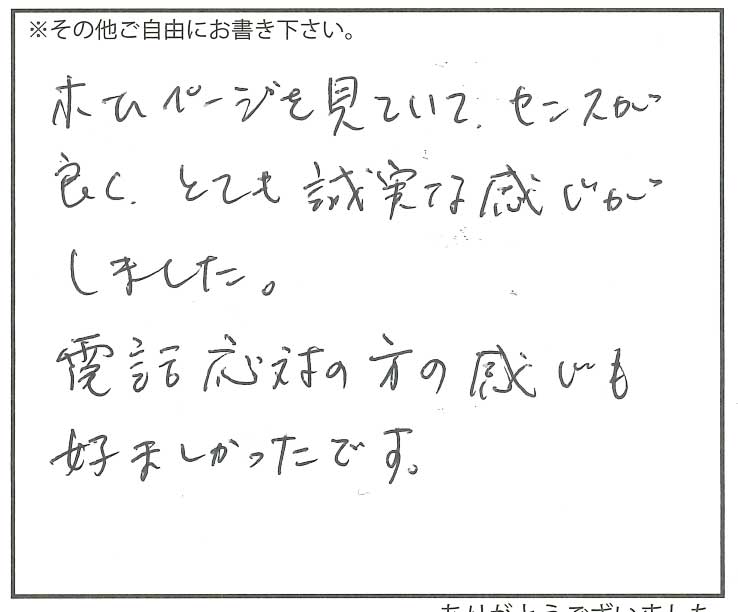 ※その他ご自由にお書き下さい。
ホムページを見ていて、センスが
良く、とても誠実な感じが
しました。
電話応対の方の感じも
好ましかったです。
ありがとうございました